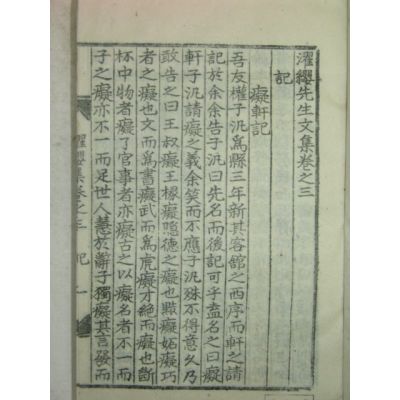 濯纓先生文集卷之三
記
癡軒記
吾友權子汎爲縣三年新其客舘之西序而軒之請
記於余余告子汎曰先名而後記可乎盍名之曰癡
軒子汎請癡之義余笑而不應子汎殊不得意久乃
敢告之曰王叔癡王掾癡隱德之癡也黠癡妬癡巧
者之癡也文而爲書癡武而爲虎癡才絶而癡也斷
杯中物者癡了官事者亦癡古之以癡名者不一而
子之癡亦不一而足世人慧於辭子獨癡其言發而
濯纓集卷之三 記 一